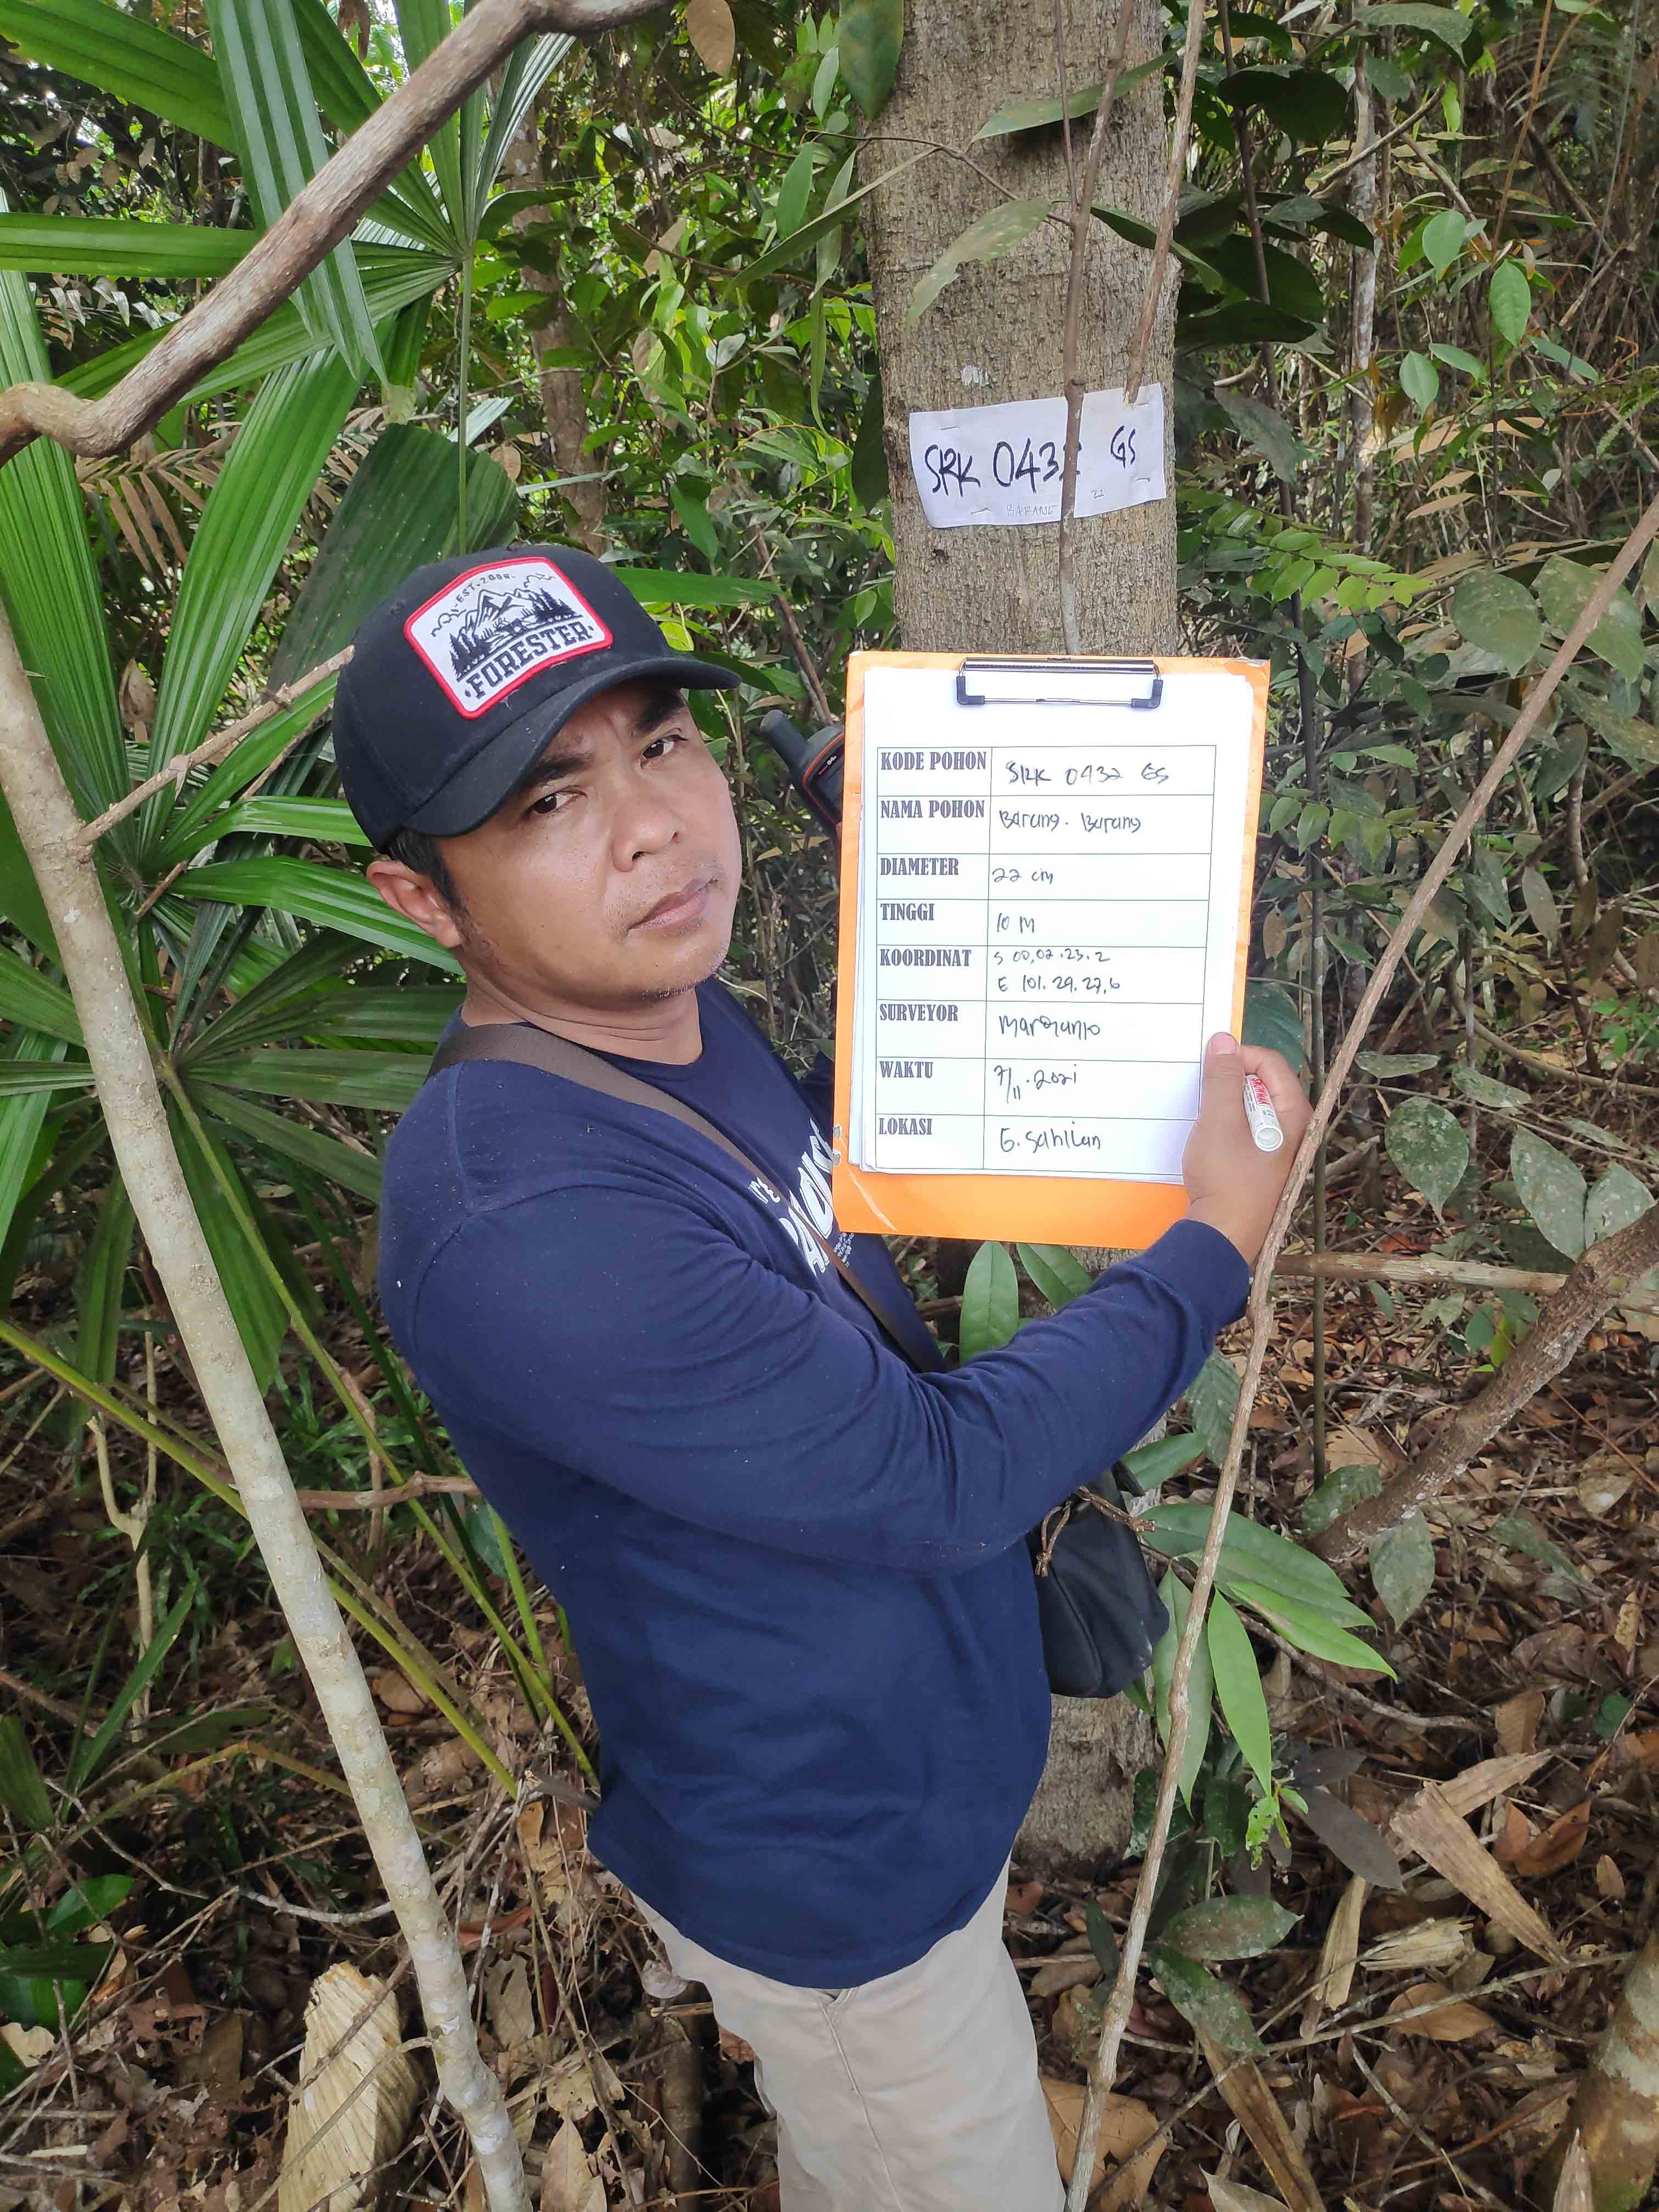 SRK 0432 GS
BARANG
22
EST-2006
·FORESTER·
KODE POHON SRK 0432 GS
NAMA POHON Barang. Barang
DIAMETER 22 cm
TINGGI 10 M
KOORDINAT S 00,02.23.2
E 101.29.27,6
SURVEYOR
WAKTU 7/11.2021
LOKASI G. Sahilan